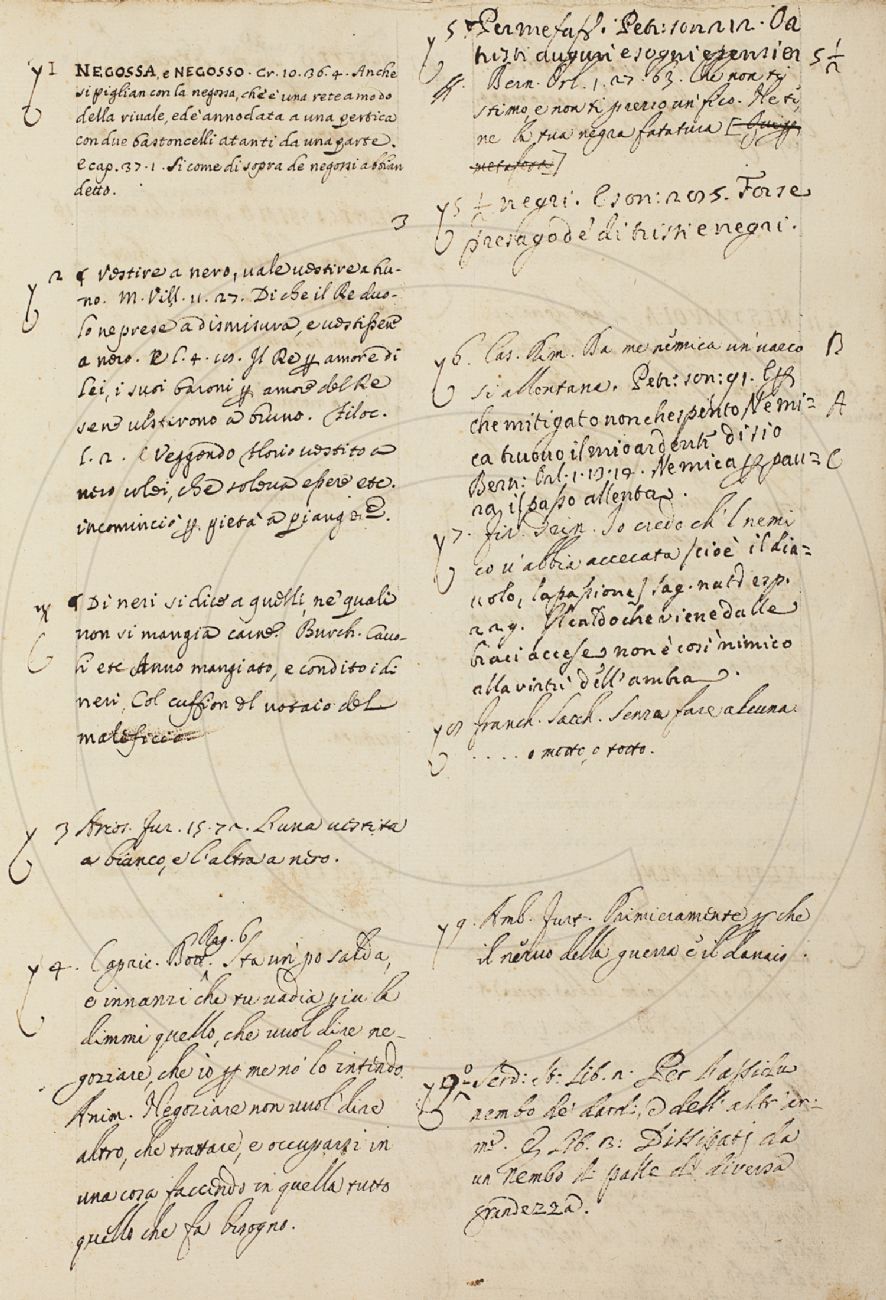 1 NEGOSSA, e NEGOSSO. Cr. 10. 36. 4. Anche
si piglian con la negossa, che è una rete a modo
della rivale, ed è annodata a una pertica
con due bastoncelli atanti da una parte.
E cap. 37. 1. Sì come di sopra de negossi abbian
detto.
3
2 ¶ Vestire a nero, vale vestire a bru-
no. M. Vill. 11. 27. Di che il Re duo-
lo ne prese a dismisura, e vestissene
a nero. Il Re p amore di
lei, i suoi baroni p amore del Re
sene vestirono a bruno. Filoc.
l. 2. Veggendo Florio vestito a
nero colei, che soleva essere etc.
incominciò p. pietà a piangere.
¶ Di neri si dice a quelli, ne' quali
non si mangia carne. Burch. Cavo-
li etc Anno mangiato, e condito i dì
neri, Col cuffion del notaio del
maleficio
3 Arios. Fur. 15. 72. L'una vestita
a bianco, e l'altra a nero.
Rag. 6
4. Capric. Bott. Sta un po salda,
e innanzi che tu vadia piu là
dimmi quello, che vuol dire ne-
goziare, che io p me no' lo intendo
Anim. Negoziare non vuol dire
altro, che trattare, e occuparsi in
una cosa faccendo in quella tutto
quello che fa bisogno.
5 Per mefass. Petr: son: 212. Da
tristi auguri e sogni e pensier 5 1/2
Bern. Orl. 1. 27. 63. Che non ti
stimo, e non ti prezzo un fico. Ne ti
ne la tua negra fatatura
5 1/2 negri. E son: 205. Forse
presago de' dì tristi e negri.
6. Cas. Rim. Da me nemica un varco B
si allontana. Petr: son: 91.
che mitigato non che spento, Nemi= A
ca truovo il mio ardente disio
Bern: Orl. 1. 13. 18. Nemica p pau= C
ra, il passo allenta.
7. Io credo ch'l nemi
co v'abbia accecata /cioè il dia=
volo, la passione/ Sag. nat. esp.
229. Il caldo che viene dalle
braci accese non è così nimico
alla virtù dell'ambra.
8 Franch. Sacch. Senza fare alcuna
. . . . . o motto, o totto.
9. Amb. Furt. Primieramente p che
il nervo della guerra è il danaio.
9º Serd: St: Lib. Per l'assiduo
nembo de' dardi, e dell'altr' ar-
me. E Lib. Dissipati da
un Nembo di palle di diversa
grandezza.